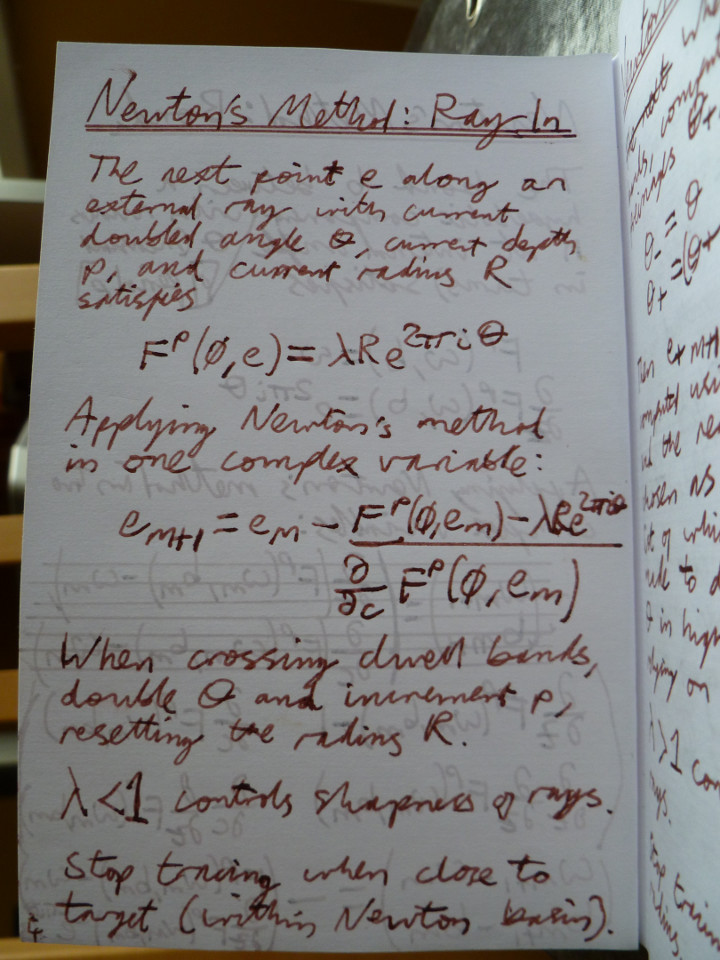 Newton's Method: Ray In
The next point e along an
external ray with current
doubled angle θ, current depth
p, and current radius R
satisfies
F^p(∅,e) = λRe^2πiθ
Applying Newton's method
in one complex variable:
e_m+1 = e_m - F^p(∅,e_m) - λRe^2πiθ
∂/∂c F^p(∅, e_m)
When crossing dwell bands,
double θ and increment p,
resetting the radius R.
λ<1 controls sharpness of rays.
Stop tracing when close to
target (within Newton basin).
4
θ_- = θ
θ_+ = (θ+